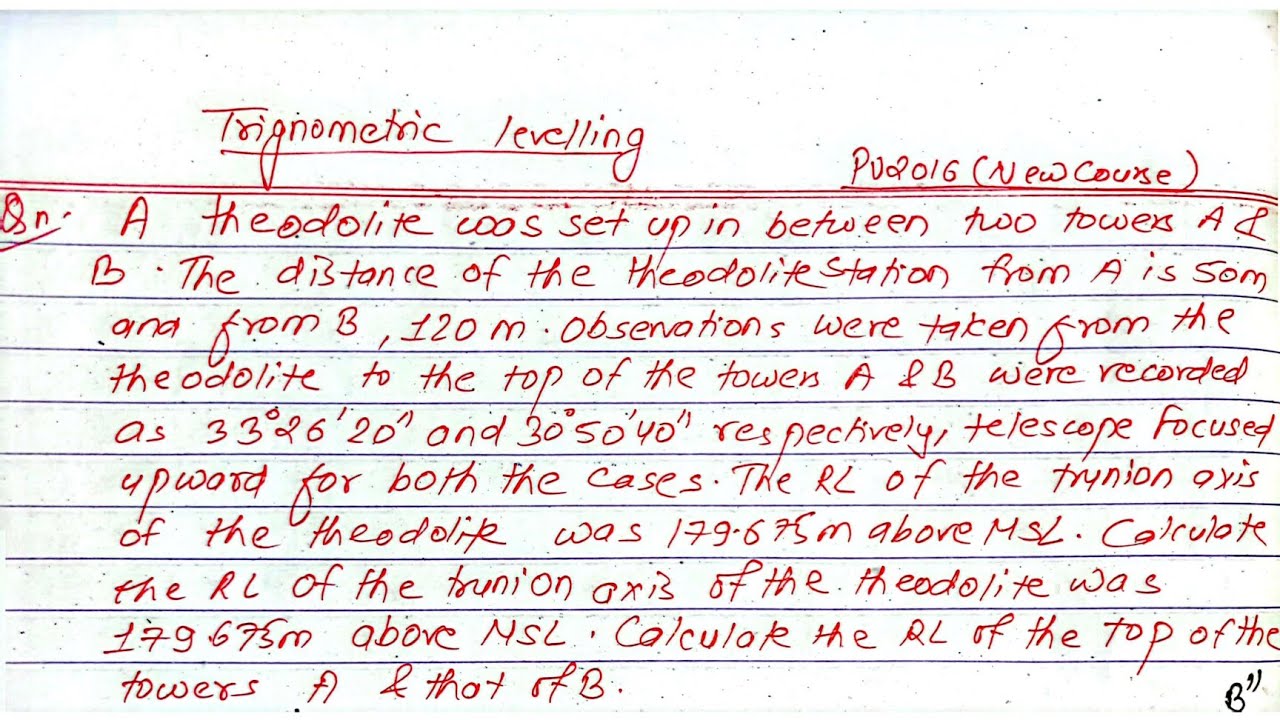 Trignometric levelling
PU2016 (New Course)
Qn. A theodolite was set up in between two towers A &
B. The distance of the theodolite station from A is 50m
and from B, 120 m. Observations were taken from the
theodolite to the top of the towers A & B were recorded
as 33°26'20" and 30°50'40" respectively, telescope focused
upward for both the cases. The RL of the trunion axis
of the theodolite was 179.675m above MSL. Calculate
the RL of the trunion axis of the theodolite was
179.675m above MSL. Calculate the RL of the top of the
towers A & that of B.
B"